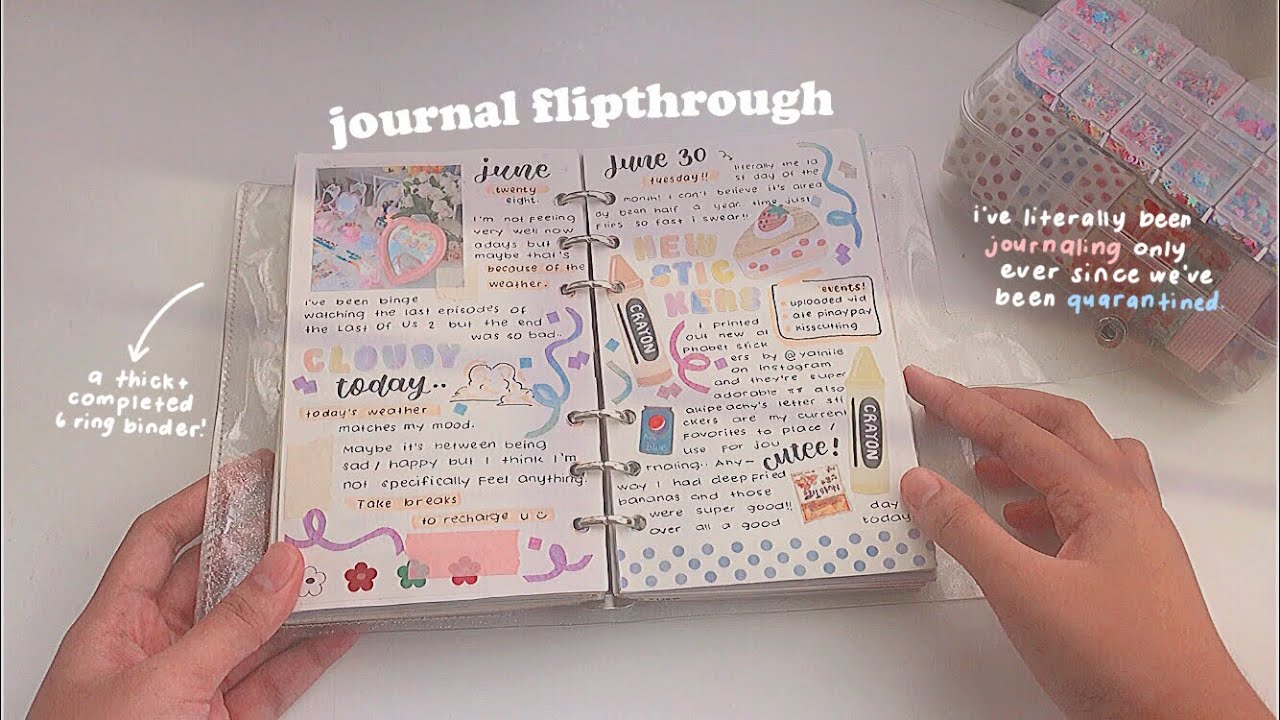 journal flipthrough
june
twenty
eight.
I'm not feeling
very well now
adays but
maybe that's
because of the
weather.
I've been binge
watching the last episodes of
the Last Of Us 2 but the end
was so bad..
CLOUDY
today..
today's weather
matches my mood.
Maybe it's between being
sad / happy but I think I'm
not specifically feel anything.
Take breaks
to recharge u
June 30
tuesday!!
literally the la
st day of the
month! I can't believe it's alrea
dy been half a year. time just
flies so fast i swear!!
NEW
STIC
KERS
events!
uploaded vid
ate pinaypay
kisscutting
CRAYON
I printed
out new al
phabet stick
ers by @yainiie
on Instagram
and they're super
adorable also
akipeachy's letter sti
ckers are my current
favorites to place /
use for jou
rnaling.. Any~
cutee!
way I had deep fried
bananas and those
were super good!!
over all a good
day
today
CRAYON
a thick +
completed
6 ring binder!
i've literally been
journaling only
ever since we've
been quarantined.